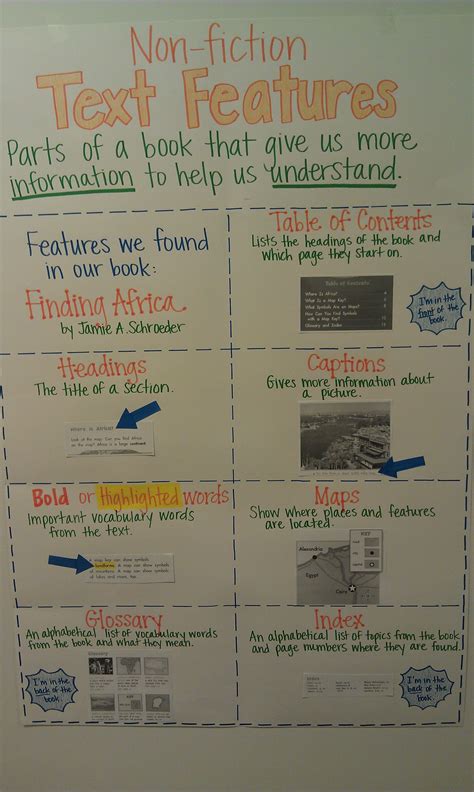 Non-fiction
Text Features
Parts of a book that give us more
information to help us understand.
Features we found
in our book:
Finding Africa
by Jamie A. Schroeder
Table of Contents
Lists the headings of the book and
which page they start on.
Table of Contents
Where Is Africa?
What Is a Map Key?
What Symbols Are on Maps?
How Can You Find Symbols
with a Map Key?
Glossary and Index
I'm in the
front of the
book.
Headings
The title of a section.
Where Is Africa?
Look at the map. Can you find Africa
on the map? Africa is a large continent
Captions
Gives more information about
a picture.
Bold or Highlighted words
Important vocabulary words
from the text.
A map key can show symbols
landforms. A map can show symbols
of mountains. A map can show symbols
of cities and more, too.
Maps
Show where places and features
are located.
KEY
Alexandria
Egypt
Cairo
Glossary
An alphabetical list of vocabulary words
from the book and what they mean.
Glossary
I'm in the
back of the
book.
Index
An alphabetical list of topics from the book
and page numbers where they are found.
I'm in the
back of the
book.